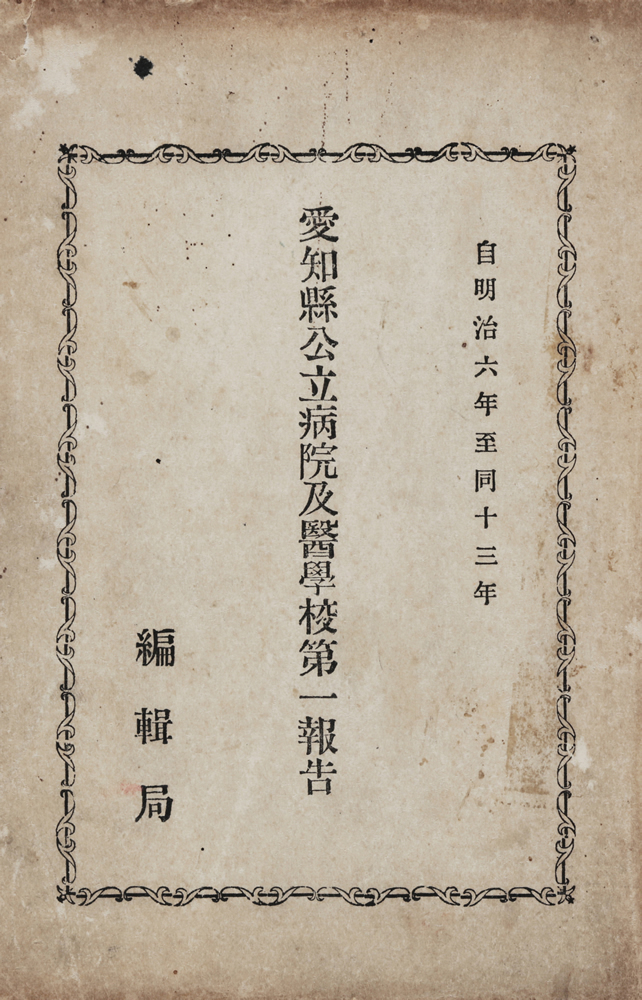 自明治六年至同十三年
愛知縣公立病院及醫學校第一報告
編輯局